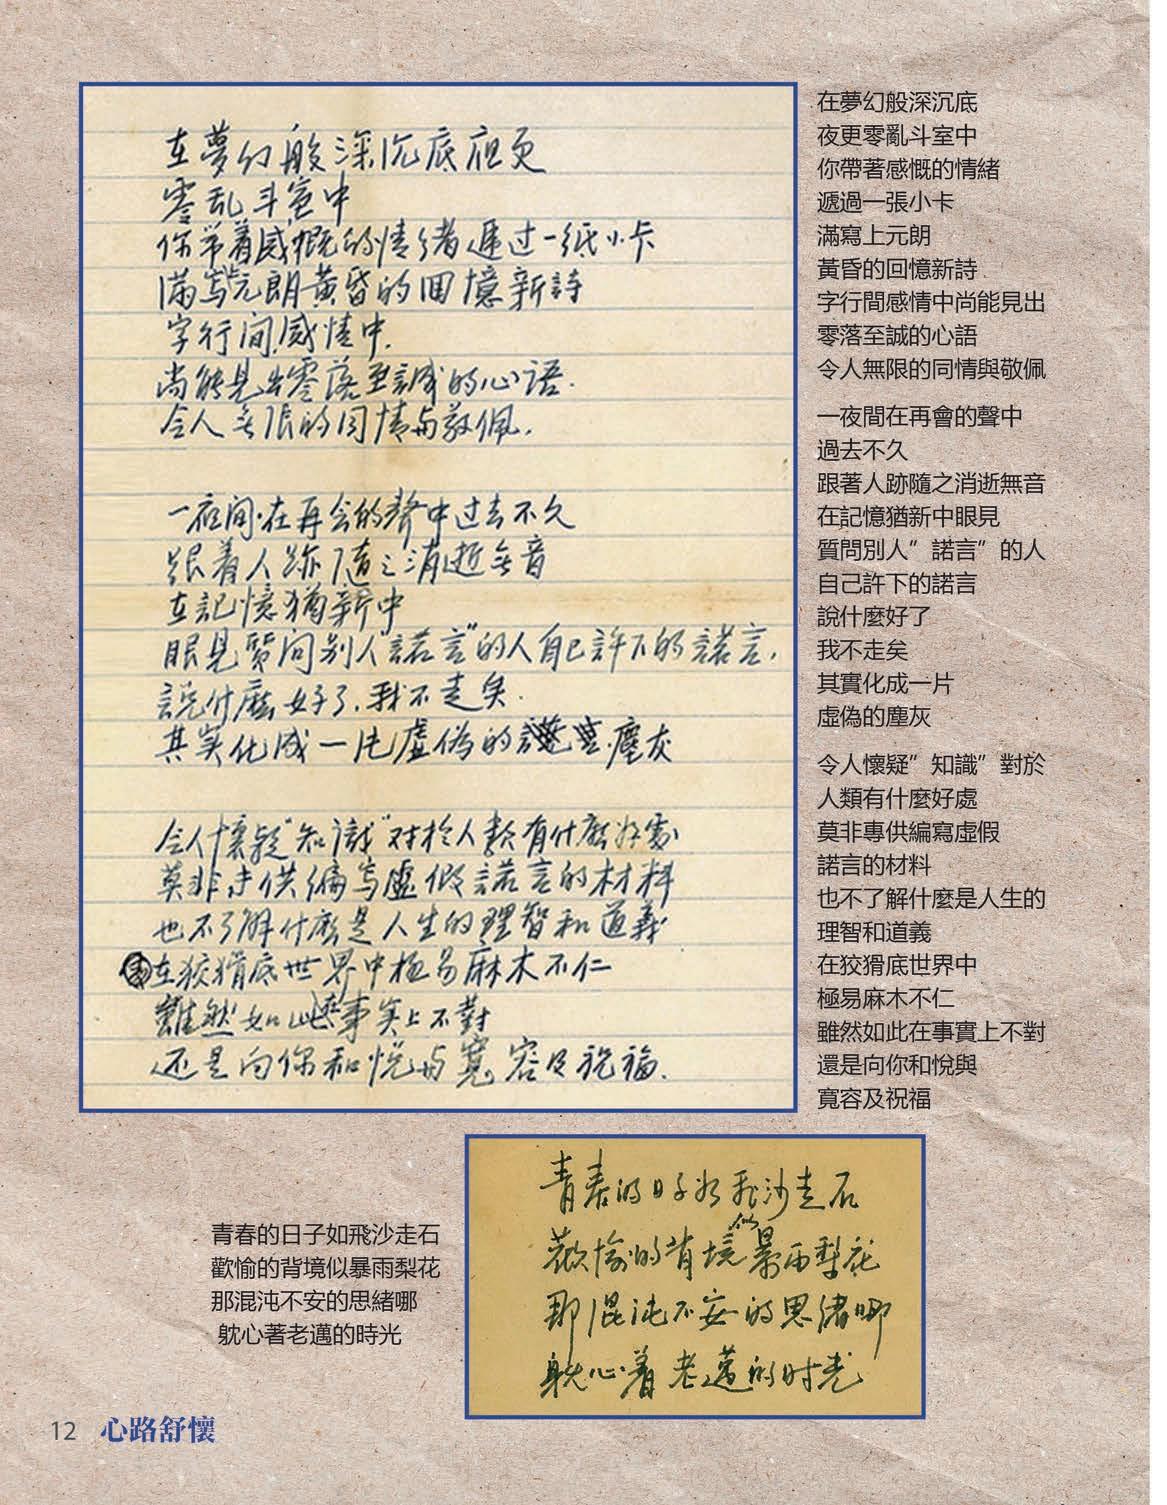 在夢幻般深沉底夜更
零乱斗室中
你带着感慨的情绪遞过一纸小卡
满寫上元朗黃昏的回憶新詩
字行间感情中.
尚能見出零落至誠的心語.
令人無限的同情与敬佩.
一夜间·在再会的聲中过去不久
跟着人跡随之消逝無音
在記憶猶新中
眼見質问别人“諾言”的人自己許下的諾言,
説什麼好了.我不走矣.
其实化成一片虚偽的塵灰
令人懷疑“知識”对於人類有什麼好處
莫非专供編寫虚假諾言的材料
也不了解什麼是人生的理智和道義
在狡猾底世界中極易麻木不仁
雖然如此在事实上不對
还是向你和悦与寬容及祝福.
在夢幻般深沉底
夜更零亂斗室中
你帶著感慨的情緒
遞過一張小卡
滿寫上元朗
黃昏的回憶新詩
字行間感情中尚能見出
零落至誠的心語
令人無限的同情與敬佩
一夜間在再會的聲中
過去不久
跟著人跡隨之消逝無音
在記憶猶新中眼見
質問別人”諾言”的人
自己許下的諾言
說什麼好了
我不走矣
其實化成一片
虛偽的塵灰
令人懷疑”知識”對於
人類有什麼好處
莫非專供編寫虛假
諾言的材料
也不了解什麼是人生的
理智和道義
在狡猾底世界中
極易麻木不仁
雖然如此在事實上不對
還是向你和悅與
寬容及祝福
青春的日子如飛沙走石
歡愉的背境似暴雨梨花
那混沌不安的思緒哪
躭心著老邁的時光
青春的日子如飛沙走石
歡愉的背境似暴雨梨花
那混沌不安的思緒哪
躭心着老邁的时光
12 心路舒懷